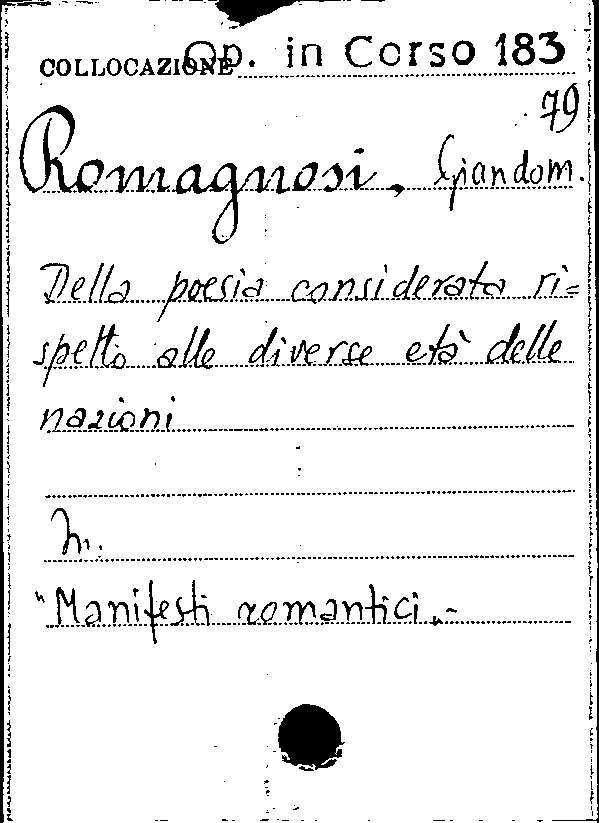 COLLOCAZIONE Op. in Corso 183
79
Romagnosi, Giandom.
Della poesia considerata ri=
spetto alle diverse età delle
nazioni
In.
"Manifesti romantici„.-